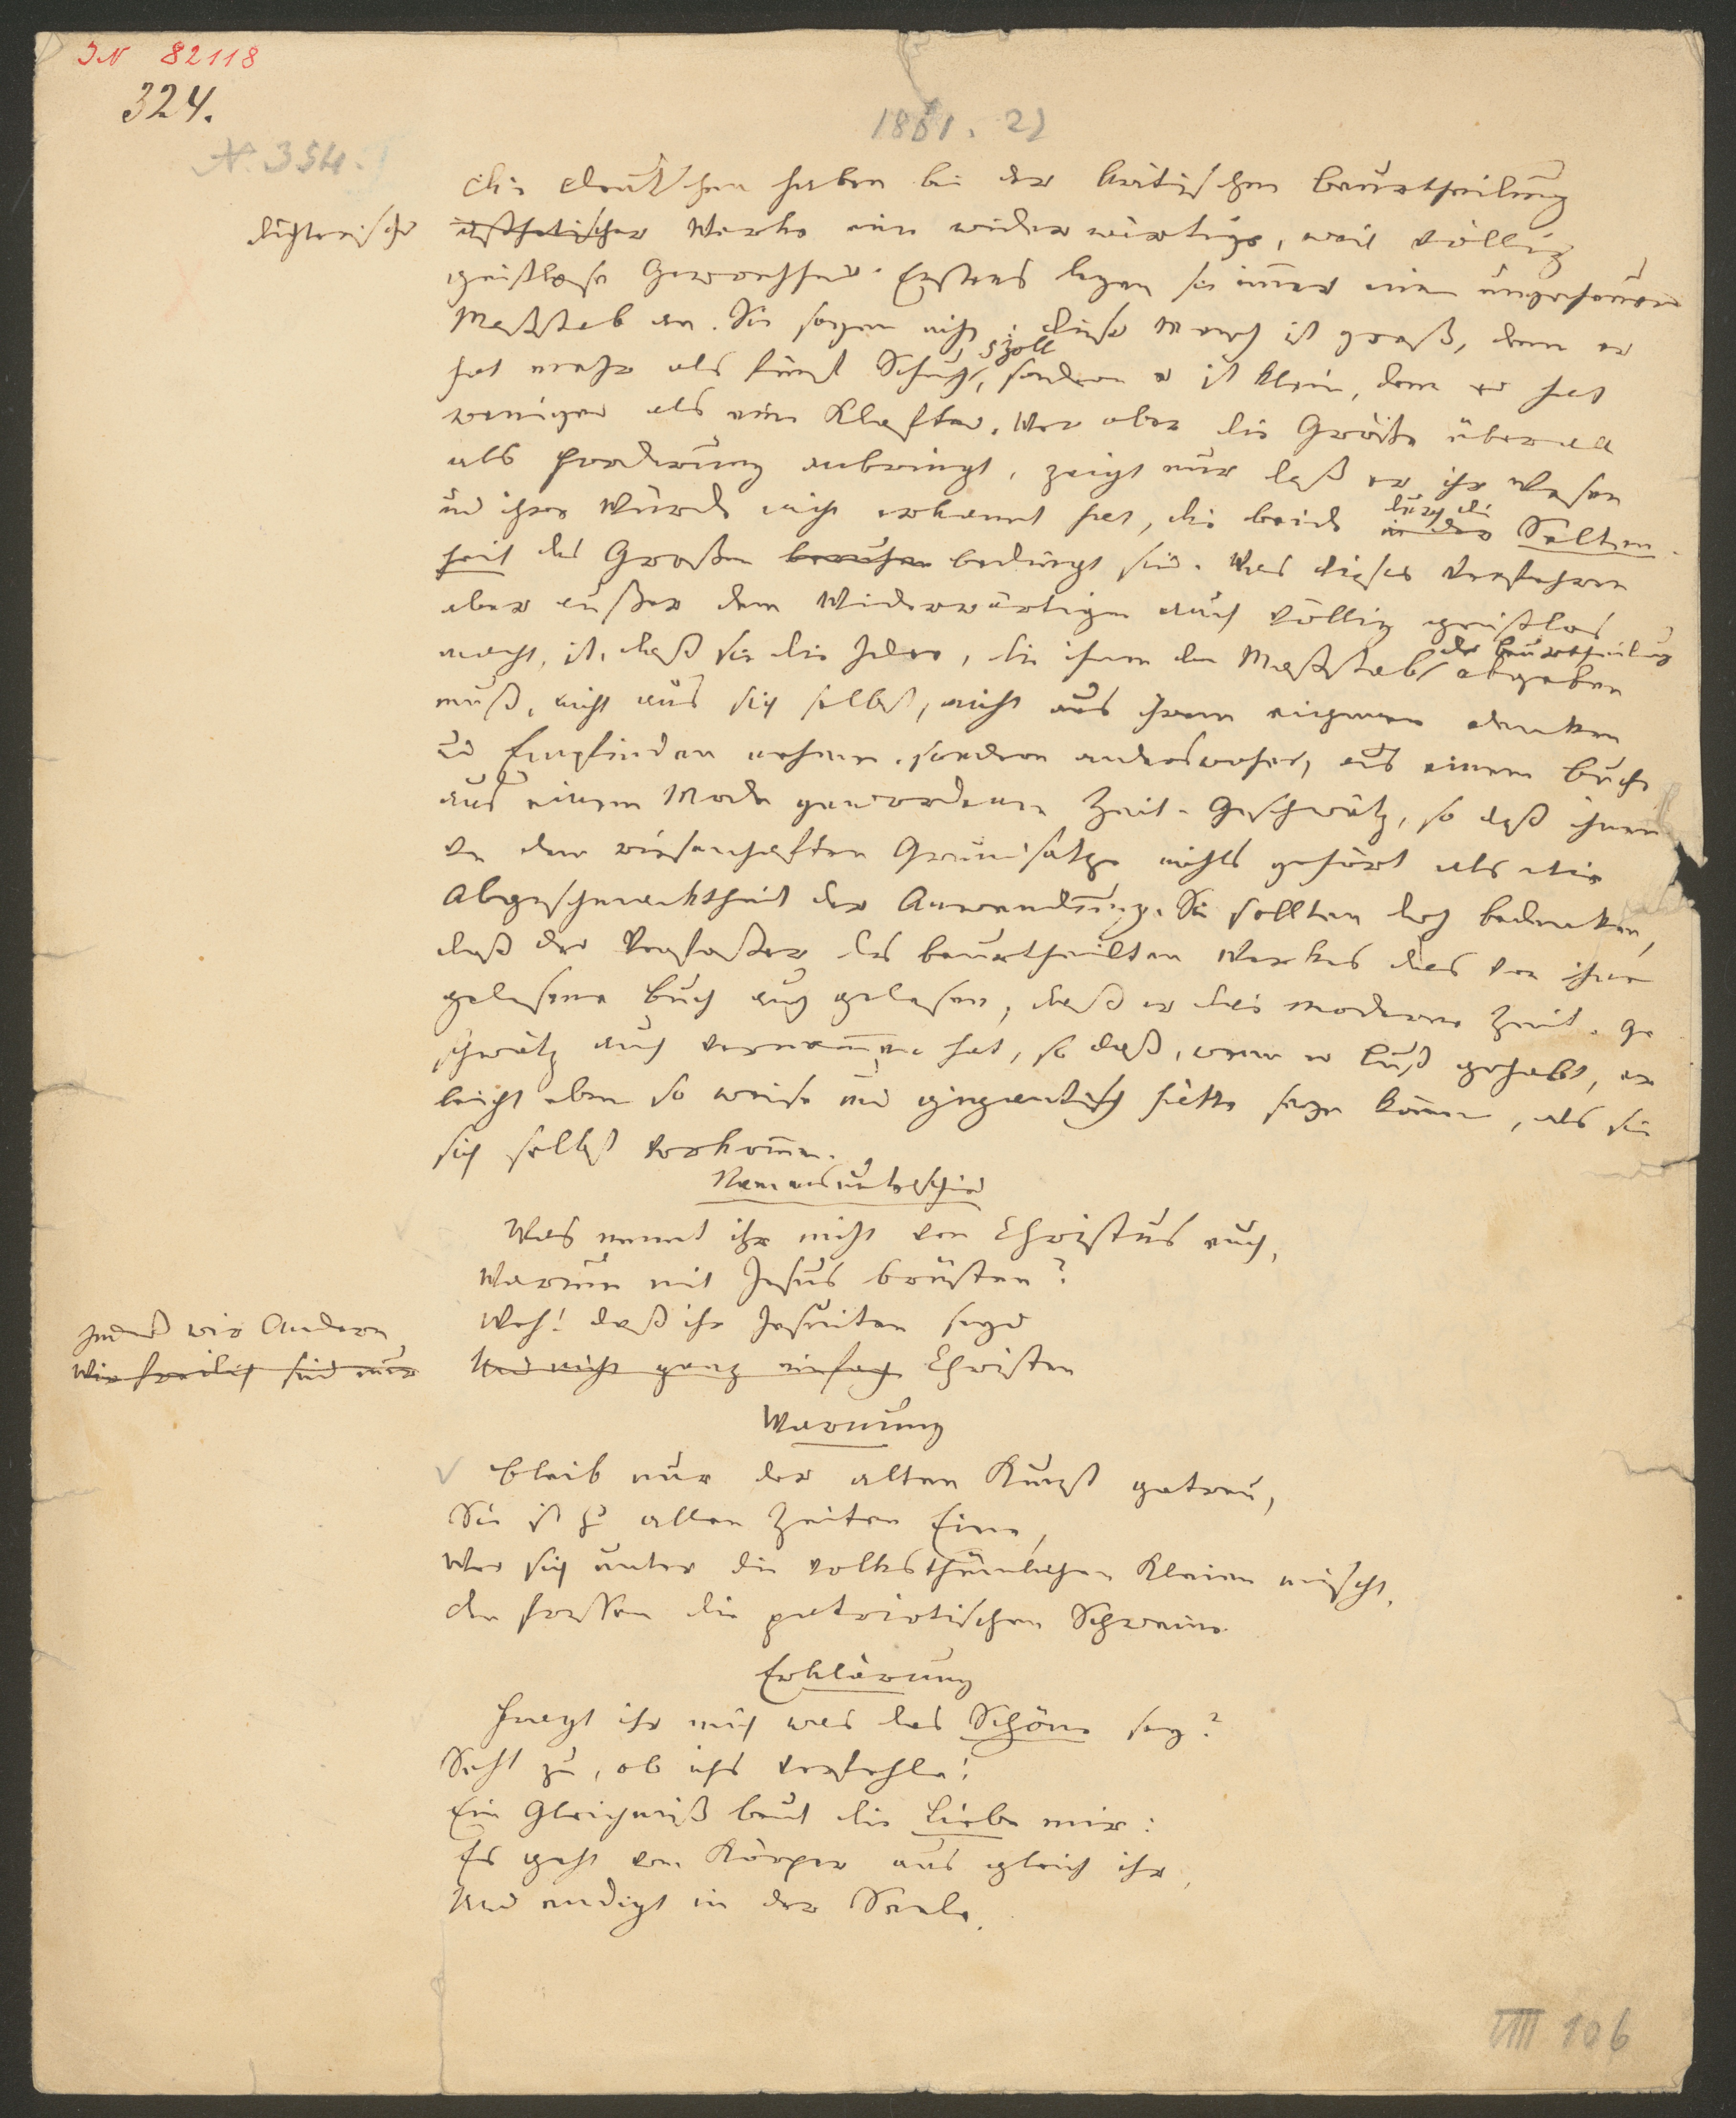 IN 82118
324.
1861. 2)
N. 354.
Die Deutschen haben bei der kritischen Beurtheilung
dichterischer ästhetischer Werke eine widerwärtige, weil völlig
geistlose Gewohnheit. Erstens legen sie immer einen ungeheuren
Maßstab an. Sie sagen nicht: dieser Mensch ist groß, denn er
5 Zoll
hat mehr als fünf Schuh, sondern er ist klein, denn er hat
weniger als eine Klafter. Wer aber die Größe überall
als Forderung anbringt, zeigt nur daß er ihr Wesen
und ihre Würde nicht erkannt hat, die beide in der durch die Selten-
heit des Großen beruhen bedingt sind. Was dieses Verfahren
aber außer dem Widerwärtigen auch völlig geistlos
macht, ist, daß sie die Idee, die ihnen den Maßstab der Beurtheilung abgeben
muß, nicht aus sich selbst, nicht aus ihrem eigenen Denken
und Empfinden nehmen, sondern anderswoher, aus einem Buche
aus einem Mode gewordenen Zeit-Geschwätz, so daß ihnen
von dem riesenhaften Grundsatze nichts gehört als die
Abgeschmacktheit der Anwendung. Sie sollten doch bedenken,
daß der Verfasser des beurtheilten Werkes das von ihnen
gelesene Buch auch gelesen, daß er das moderne Zeit-Ge
schwätz auch vernommen hat, so daß, wenn er Lust gehabt, er
leicht eben so weise und gigantisch hätte seyn können, als sie
sich selbst vorkommen.
Namensunterschied
Was nennt ihr nicht von Christus euch,
Warum mit Jesus brüsten?
Weh! daß ihr Jesuiten seyd
Indeß wir Andern
Wir freilich sind nur Und nicht ganz einfach Christen
Warnung
Bleib nur der alten Kunst getreu,
Sie ist zu allen Zeiten Eine,
Wer sich unter die volksthümlichen Kleien mischt,
den fressen die patriotischen Schweine.
Erklärung
Fragt ihr mich was das Schöne sey?
Seht zu, ob ichs verfehle!
Ein Gleichniß beut die Liebe mir:
Es geht vom Körper aus gleich ihr,
Und endigt in der Seele.
VIII 106